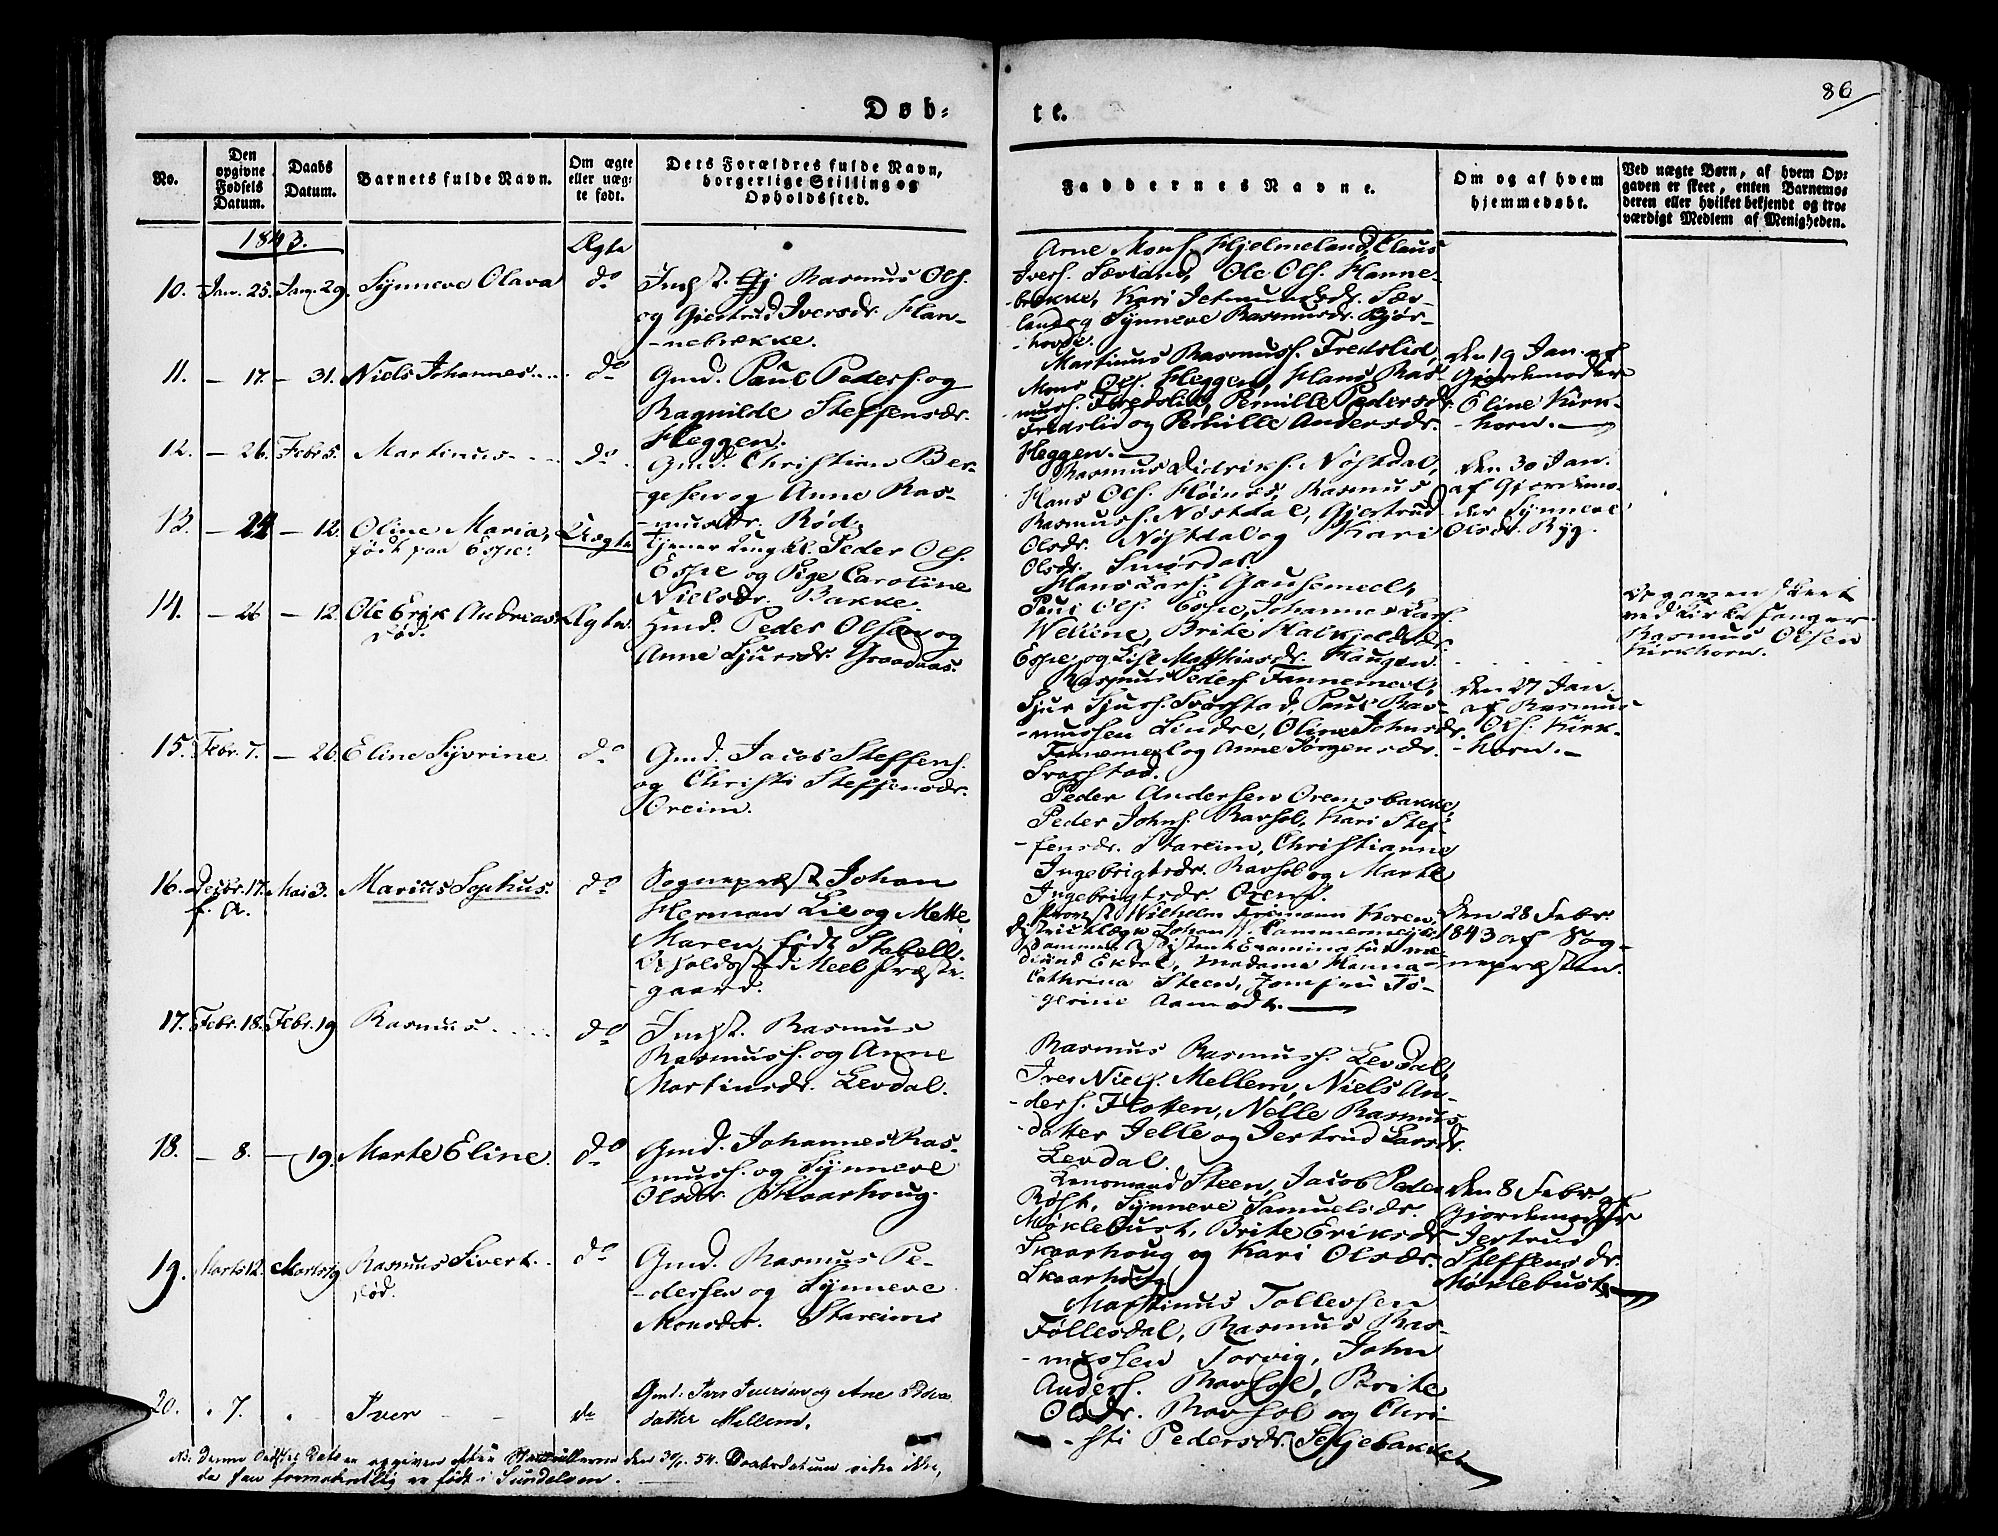 Døb=
te.
86
No.
Den opgivne Fødsels Datum.
Daabs Datum.
Barnets fulde Navn.
Om ægte eller uæg-te født.
Dets Forældres fulde Navn, borgerlige Stilling og Opholdssted.
Faddernes Navne.
Om og af hvem hjemmedøbt.
Ved uægte Børn, af hvem Op-gaven er skeet, enten Barnemo-deren eller hvilket bekjendt og tro-værdigt Medlem af Menigheden.
1843.
Ægte
10. Jan. 25. Jan. 29. Synneve Olava do
Indst. Rasmus Ols.
og Gjertrud Iversdr. Han-
-nebrække.
Arne Mons. Hjelmeland, Claus
Ivers. Sævland, Ole Ols. Hanne-
-brække, Kari Jetmundsdr. Sæv-
land og Synneve Rasmusdr. Kjør-
-hovde.
11. — 17. — 31. Niels Johannes do
Gmd. Paul Peders. og
Ragnilde Steffensdr.
Heggen.
Martinus Rasmuss. Fredslid,
Mons Ols. Heggen, Hans Ras-
-muss. Fredslid, Pernille Pedersdr.
Fredslid og Pernille Andersdr.
Heggen.
den 19 Jan. af
Gjordemoder
Eline Kirk-
-horn.
12. — 26. Febr. 5. Martinus do
Gmd. Christian Ber-
-gesen og Anne Ras-
-musdr. Rød.
Rasmus Didriks. Nøstdal,
Hans Ols. Høines, Rasmus
Rasmuss. Nøstdal, Gjertrud
Olsdr. Nøstdal og Kari
Olsdr. Smørdal.
den 30 Jan.
af Gjordemo-
der Synneve
Olsdr. Ryg.
13. — 24 — 12. Oline Maria,
født paa Espe. Uægte
Tjener Ungkl. Peder Ols.
Espe og Pige Caroline
Nielsdr. Bakke.
Hans Lars. Gausemeel,
Paul Ols. Espe, Johannes Lars.
Wellene, Brite Halkjeldsdr.
Espe og Lise Matthiasdr. Haugen.
Opgaven skeet
ved Kirkesanger
Rasmus Olsen
Kirkhorn.
14. — 26 — 12. Ole Erik Andreas Ægte.
død.
Hmd. Peder Olsen og
Anne Sjursdr. Graadaas.
Rasmus Peders. Tannemeel,
Sjur Sjurs. Svarstad, Paul Ras-
-mussen Lindre, Oline Johnsdr.
Tannemeel og Anne Jørgensdr.
Svarstad.
den 27 Jan.
af Rasmus
Ols. Kirk-
-horn.
15. Febr. 7. — 26. Eline Syvrine do
Gmd. Jacob Steffens.
og Christi Steffensdr.
Oreim.
Peder Andersen Oremsbakke,
Peder Johns. Ravhol, Kari Stef-
-fensdr. Stareim, Christianne
Ingebrigtsdr. Ravhol og Marte
Ingebrigtsdr. Orems.
16. Decbr. 17. Mai 3. Marius Sophus. do
f. A.
Sognepræst Johan
Herman Lie og Mette
Maren, født Stabell.
Opholdssted Meel Præste-
gaard.
Provst Wilhelm Frimann Koren,
Districtslæge Johan F. Cammermeyer,
sammes Assistent Examinatus me-
dicind Ekdal, Madame Hanna
Cathrina Steen, Jomfru To-
gerine Aamodt.
den 28 Febr.
1843 af Sog-
nepræsten.
17. Febr. 18. Febr. 19. Rasmus do
Indst. Rasmus
Rasmuss. og Anne
Martinsdr. Levdal.
Rasmus Rasmuss. Levdal,
Iver Niels. Mellem, Niels An-
-ders. Flotten, Nelle Rasmus-
-datter Jelle og Jertrud Larsdr.
Levdal.
18. — 8. — 19. Marte Eline. do
Gmd. Johannes Ras-
-muss. og Synneve
Olsdr. Skaarhoug.
Lensmand Steen, Jacob Peders.
Røst, Synneve Samuelsdr.
Møklebust, Brite Eriksdr.
Skaarhoug og Kari Olsdr.
Skaarhoug.
den 8 Febr. af
Gjordemoder
Jertrud
Steffensdr.
Møklebust.
19. Marts 12. Marts 19 Rasmus Sivert. do
død.
Gmd. Rasmus Pe-
-dersen og Synneve
Monsdr. Stareim
Martinus Tollevsen
Føllesdal, Rasmus Ras-
-mussen Torvig, John
Anders. Ravhol, Brite
Olsdr. Ravhol og Chri-
-sti Pedersdr. Seljebakke.
20. " 7. " Iver do
Gmd. Iver Iversen og Ane Peders-
datter Mellem.
NB. Denne Fødsels Dato er opgiven efter den 30/1 54. Daabsdatum vides ikke,
da han formodentlig er født i Sundalen.